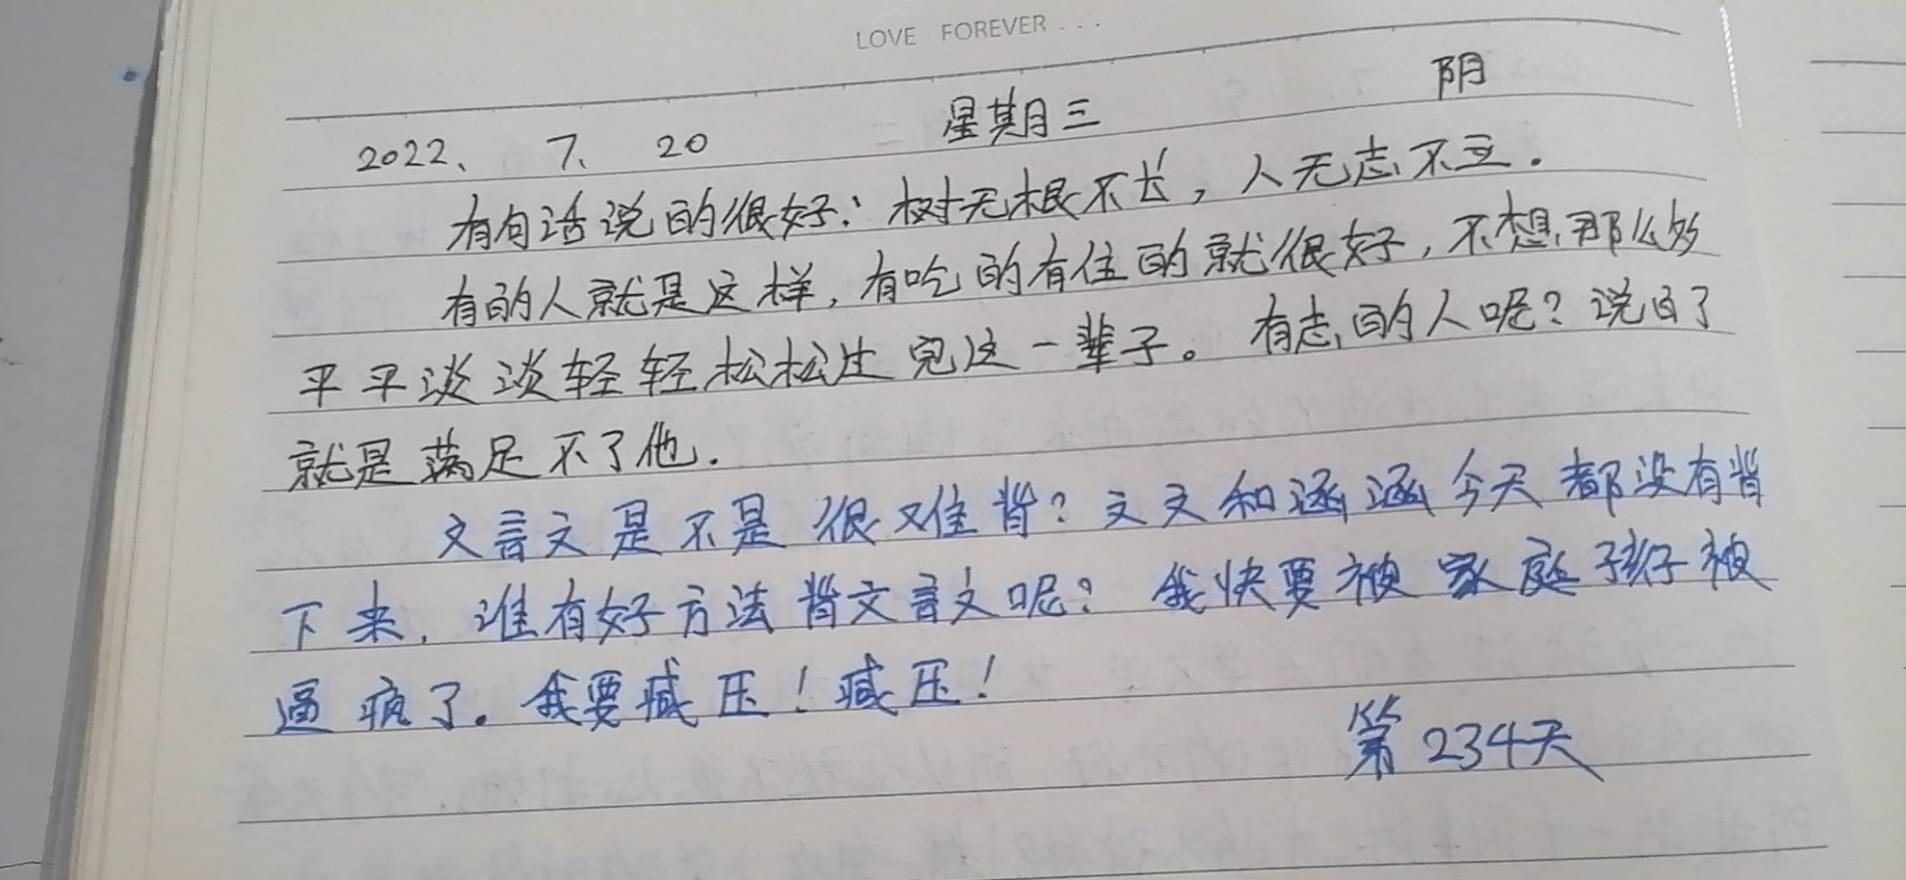 LOVE FOREVER...
2022、 7、 20 星期三 阴
有句话说的很好：树无根不长，人无志不立.
有的人就是这样，有吃的有住的就很好，不想那么多
平平淡淡轻轻松松过完这一辈子。有志的人呢？说白了
就是满足不了他.
文言文是不是很难背？文文和涵涵今天都没有背
下来，谁有好方法背文言文呢？我快要被家庭孩子被
逼疯了。我要减压！减压！
第234天